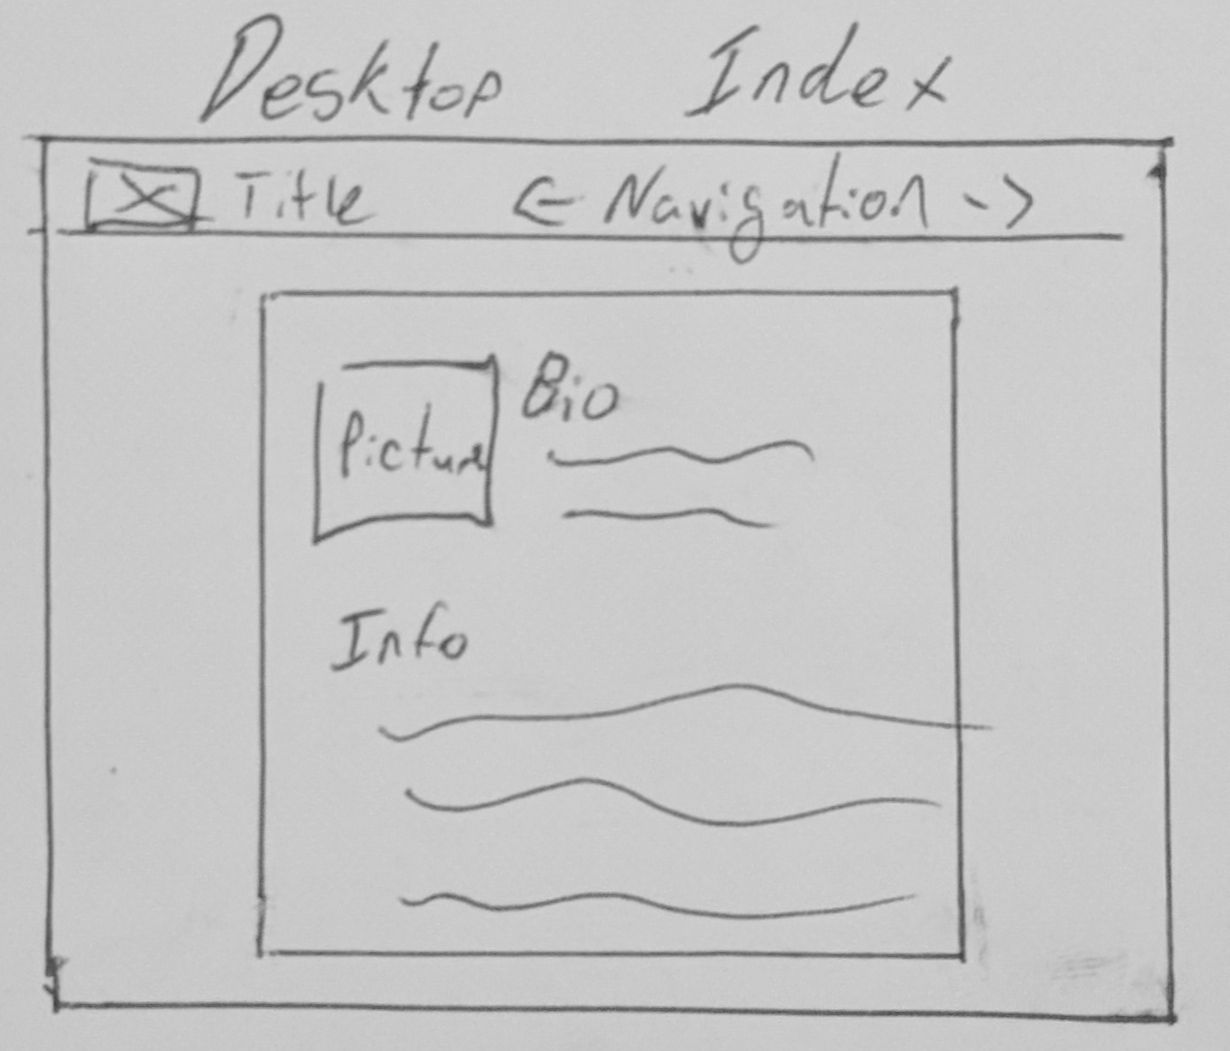 Desktop Index
Title <- Navigation ->
Picture
Bio
Info